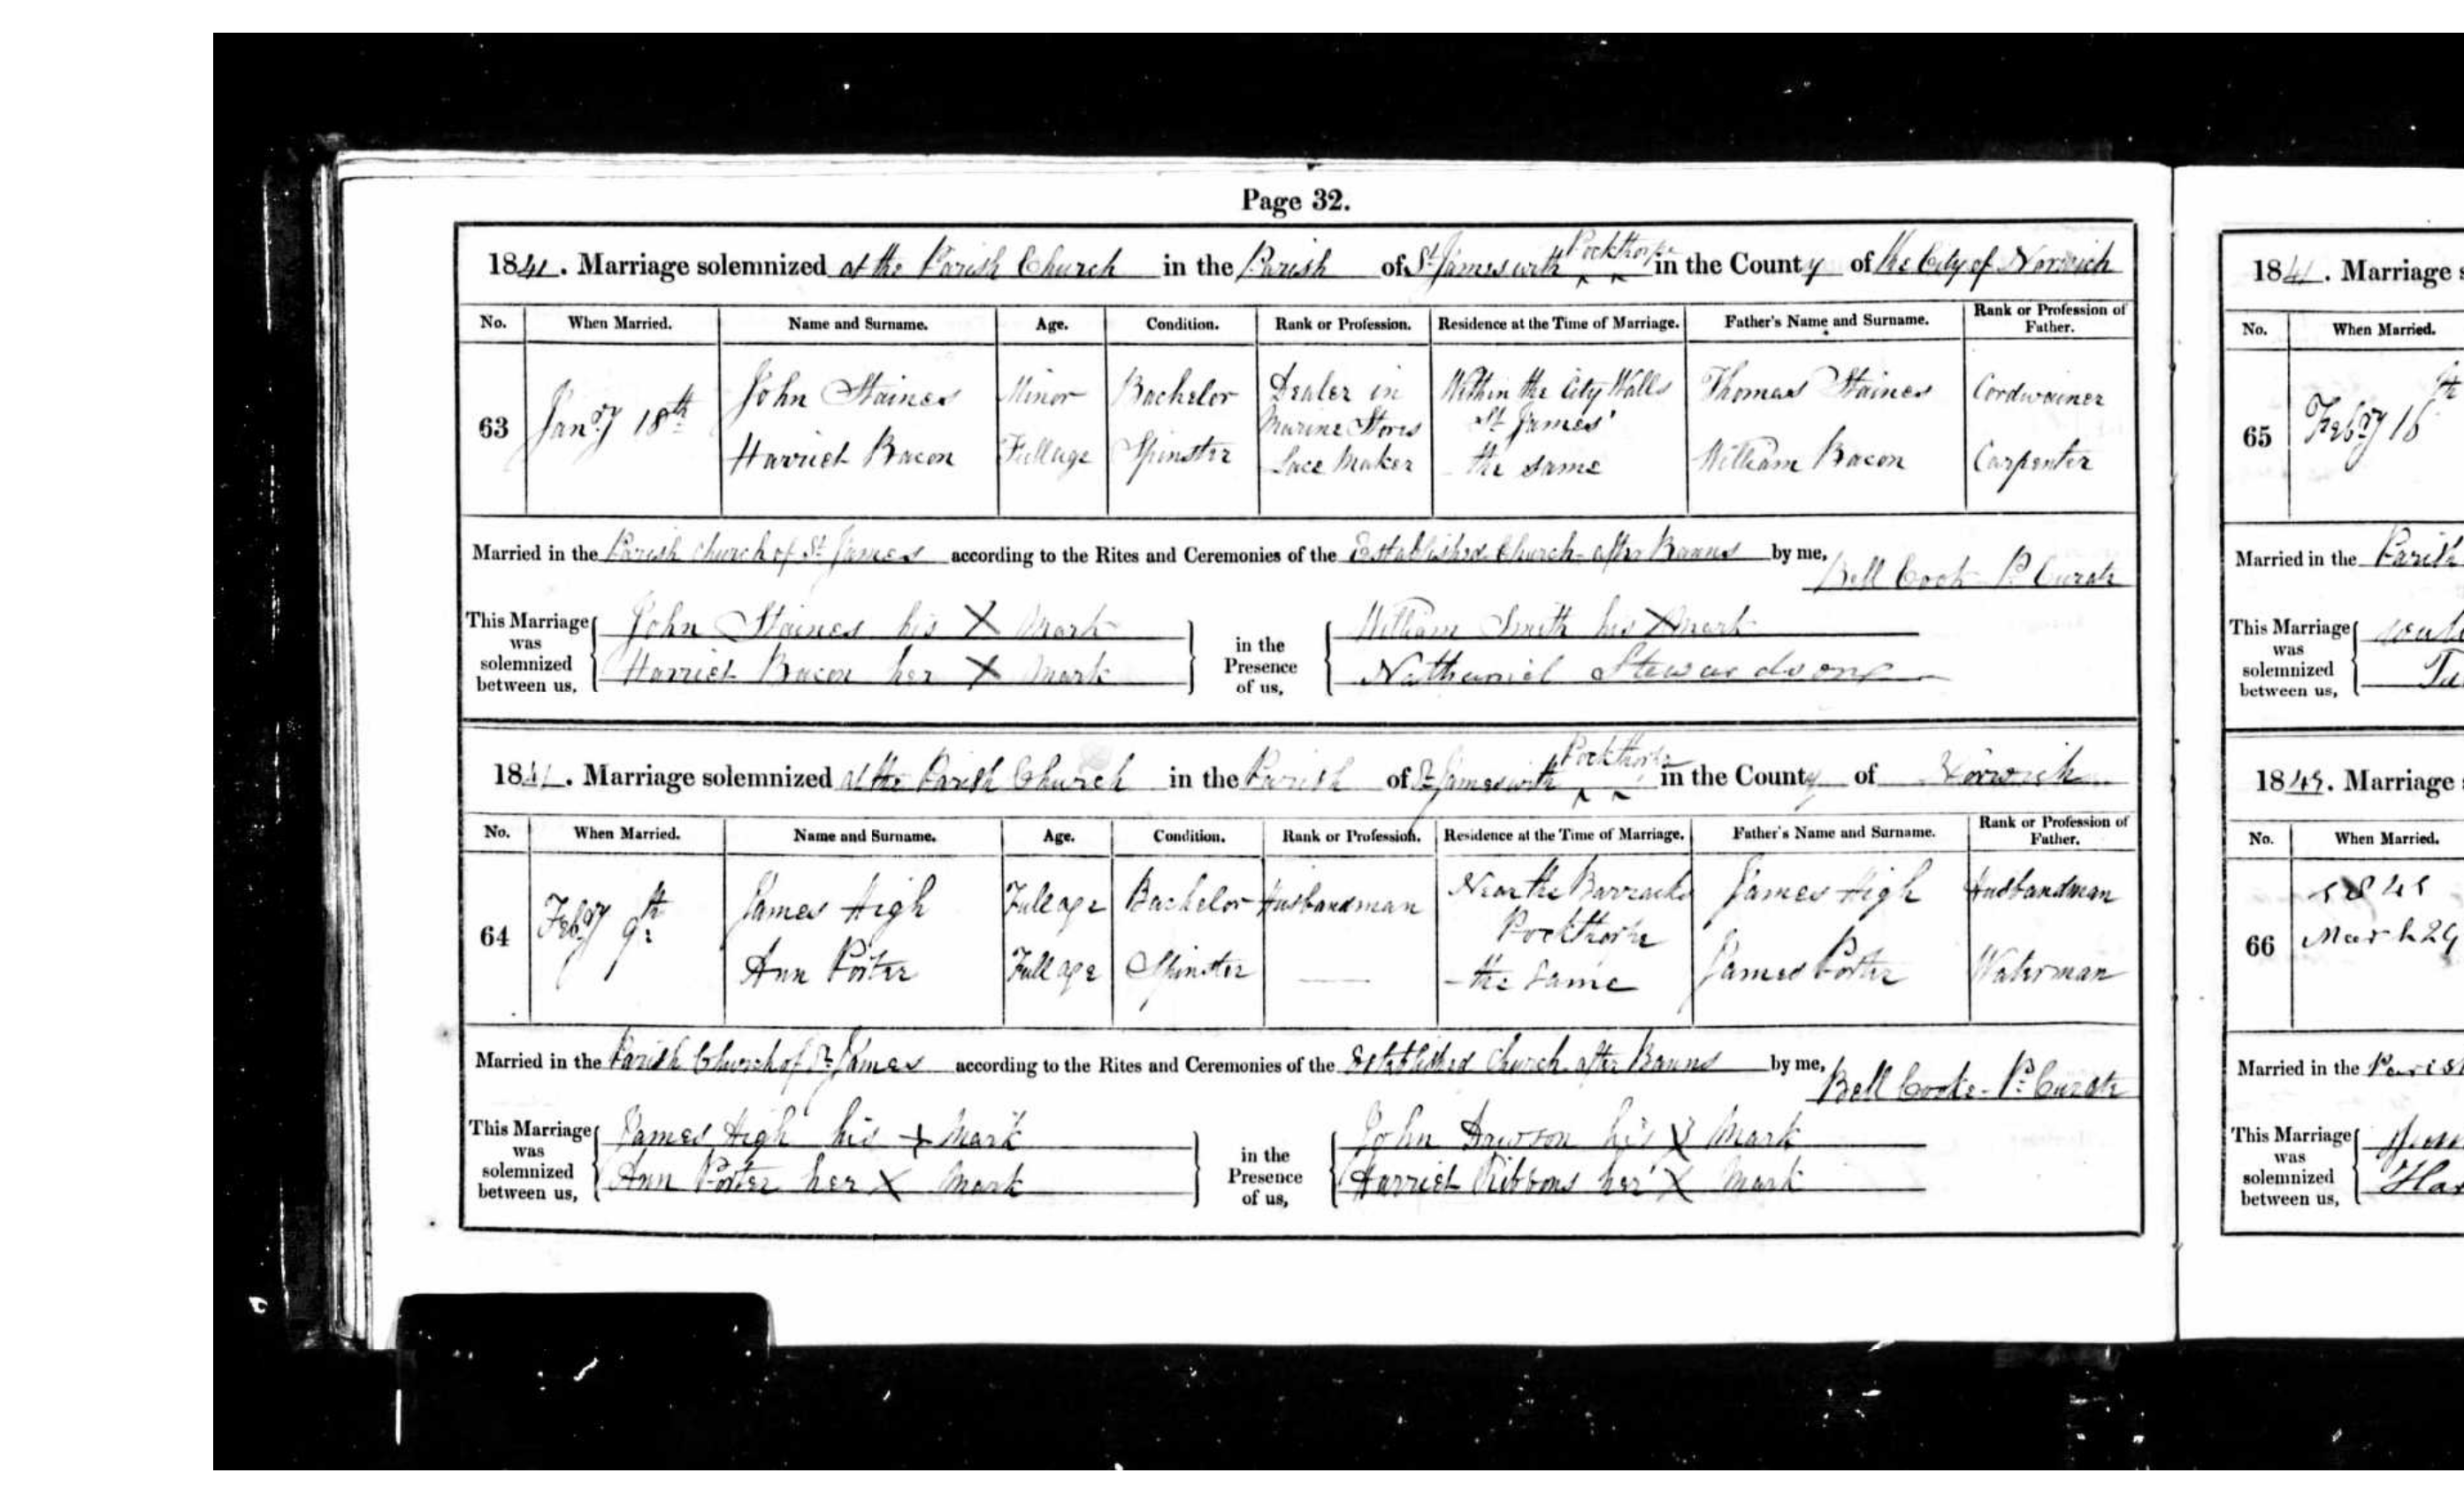 Page 32.
1841. Marriage solemnized at the Parish Church in the Parish of St James with Pockthorpe in the County of the City of Norwich
No. When Married. Name and Surname. Age. Condition. Rank or Profession. Residence at the Time of Marriage. Father's Name and Surname. Rank or Profession of Father.
63 Jany 18th John Staines Minor Bachelor Dealer in Marine Stores Within the City Walls St James' Thomas Staines Cordwainer
Harriet Bacon Full age Spinster Lace Maker the same William Bacon Carpenter
Married in the Parish Church of St James according to the Rites and Ceremonies of the Established Church after Banns by me,
Bell Cook P. Curate
This Marriage was solemnized between us, John Staines his X Mark
Harriet Bacon her X Mark
in the Presence of us, William Smith his X Mark
Nathaniel Stewardsong
1841. Marriage solemnized at the Parish Church in the Parish of St James with Pockthorpe in the County of Norwich
No. When Married. Name and Surname. Age. Condition. Rank or Profession. Residence at the Time of Marriage. Father's Name and Surname. Rank or Profession of Father.
64 Feby 9th James High Full age Bachelor Husbandman Near the Barracks Pockthorpe James High Husbandman
Ann Porter Full age Spinster — the same James Porter Waterman
Married in the Parish Church of St James according to the Rites and Ceremonies of the Established Church after Banns by me,
Bell Cooke - P. Curate
This Marriage was solemnized between us, James High his + Mark
Ann Porter her X Mark
in the Presence of us, John Dawson his X Mark
Harriet Ribbons her X Mark
1841. Marriage
No. When Married.
65 Feby 16th
Married in the Parish
This Marriage was solemnized between us,
1845. Marriage
No. When Married.
66 1845
March 24
Married in the Parish
This Marriage was solemnized between us,